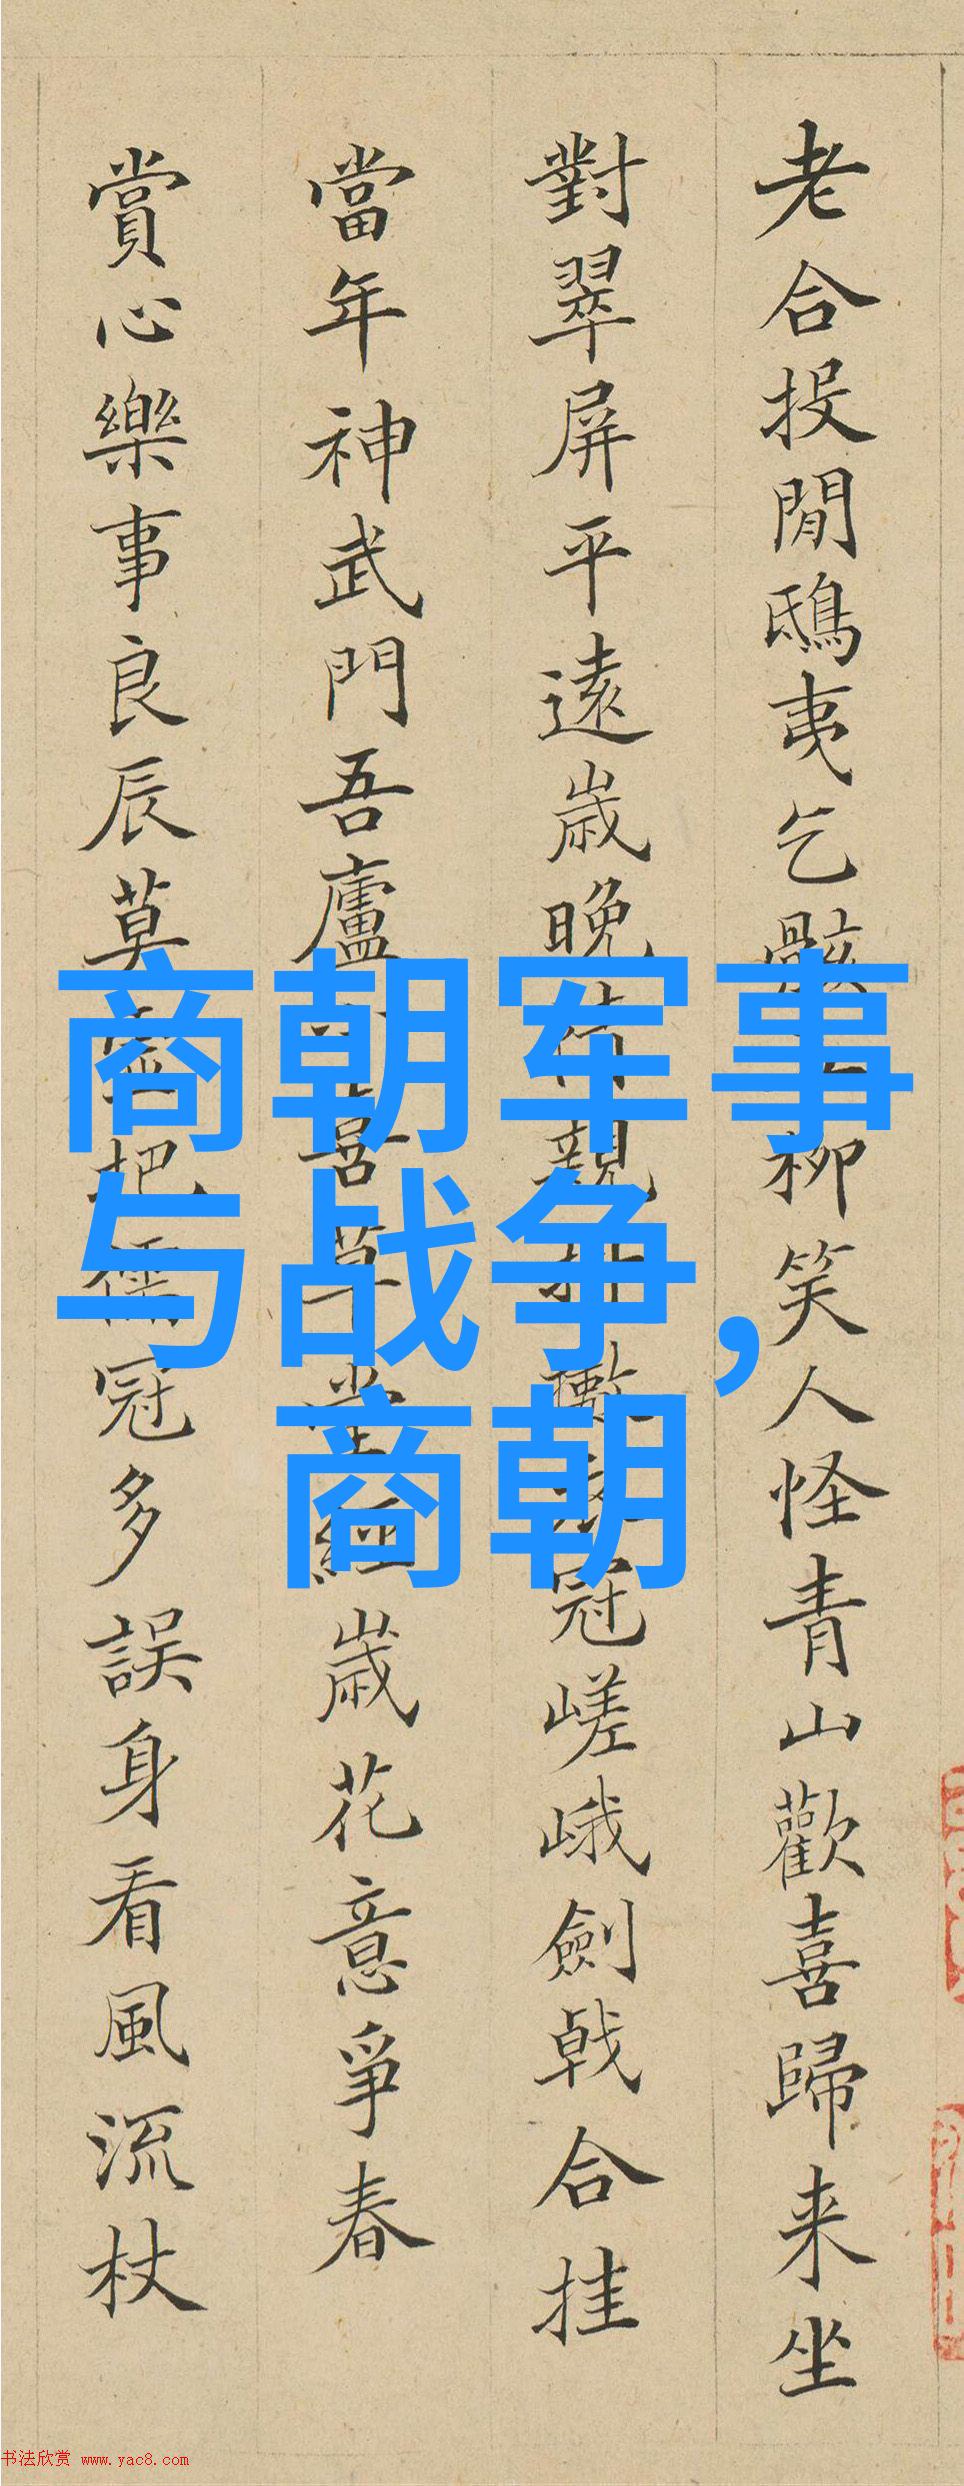 老合投閒鴟夷乞骸柳笑人怪青山歡喜歸来坐
對翠屏平遠歲晚親冠嵯峨劍戟合挂
當年神武門吾廬草堂經歲花意爭春
賞心樂事良辰莫把儒冠多誤身看風流杖
商朝军事
与战争,
商朝
书法欣赏 www.yac8.com